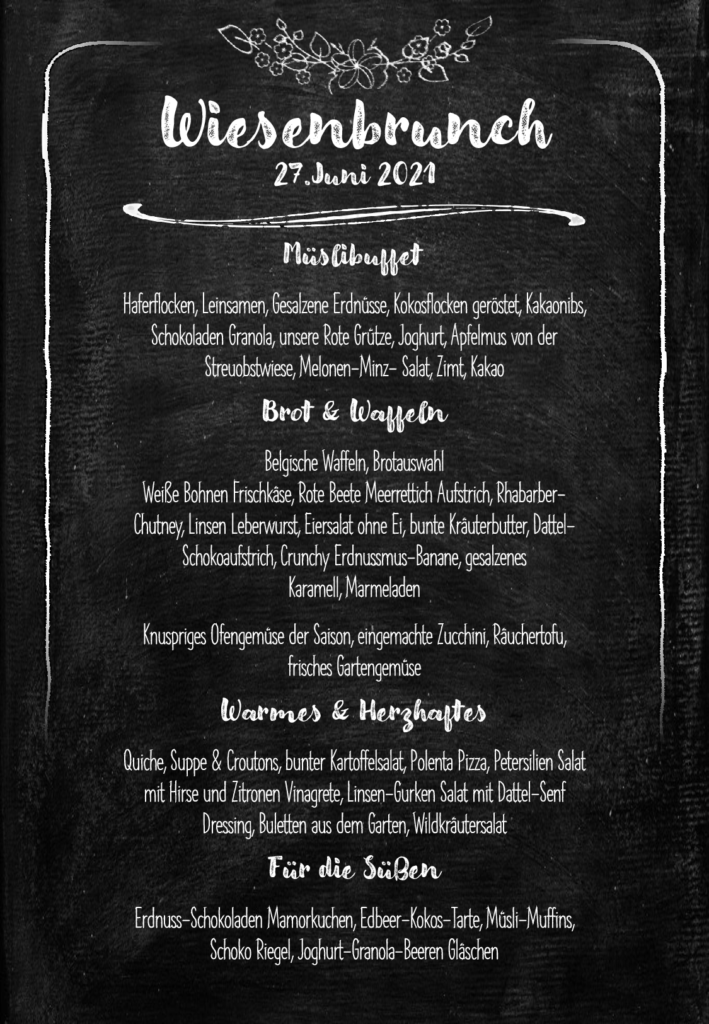 Wiesenbrunch
27.Juni 2021
Müslibuffet
Haferflocken, Leinsamen, Gesalzene Erdnüsse, Kokosflocken geröstet, Kakaonibs,
Schokoladen Granola, unsere Rote Grütze, Joghurt, Apfelmus von der
Streuobstwiese, Melonen-Minz- Salat, Zimt, Kakao
Brot & Waffeln
Belgische Waffeln, Brotauswahl
Weiße Bohnen Frischkäse, Rote Beete Meerrettich Aufstrich, Rhabarber-
Chutney, Linsen Leberwurst, Eiersalat ohne Ei, bunte Kräuterbutter, Dattel-
Schokoaufstrich, Crunchy Erdnussmus-Banane, gesalzenes
Karamell, Marmeladen
Knuspriges Ofengemüse der Saison, eingemachte Zucchini, Räuchertofu,
frisches Gartengemüse
Warmes & Herzhaftes
Quiche, Suppe & Croutons, bunter Kartoffelsalat, Polenta Pizza, Petersilien Salat
mit Hirse und Zitronen Vinagrete, Linsen-Gurken Salat mit Dattel-Senf
Dressing, Buletten aus dem Garten, Wildkräutersalat
Für die Süßen
Erdnuss-Schokoladen Mamorkuchen, Edbeer-Kokos-Tarte, Müsli-Muffins,
Schoko Riegel, Joghurt-Granola-Beeren Gläschen